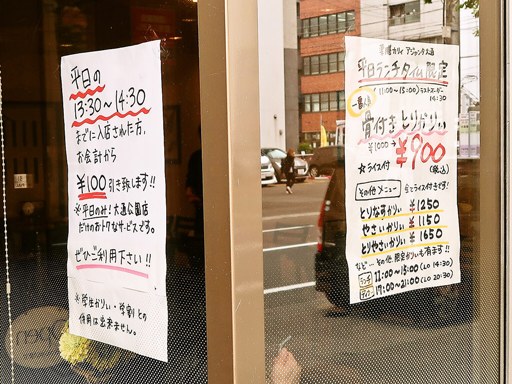 平日の
13:30~14:30
までに入店された方、
お会計から
¥100引き致します!!
※平日のみ!大通公園店
だけのおトクなサービスです。
ぜひご利用下さい!!
※学生かりぃ・学割との
併用は出来ません。
open
アジャンタ大通
平日ランチタイム限定
(11:00~15:00)ラストオーダー
14:30
一番人気
骨付きとりかりぃ
¥1000→¥900
(税込)
☆ライス付
その他メニュー 全てライス付きです!
とりなすかりぃ ¥1250
やさいかりぃ ¥1150
とりやさいかりぃ ¥1650
など…その他、限定かりぃも有ります!!
ランチ 11:00~15:00(LO 14:30)
ディナー 17:00~21:00(LO 20:30)